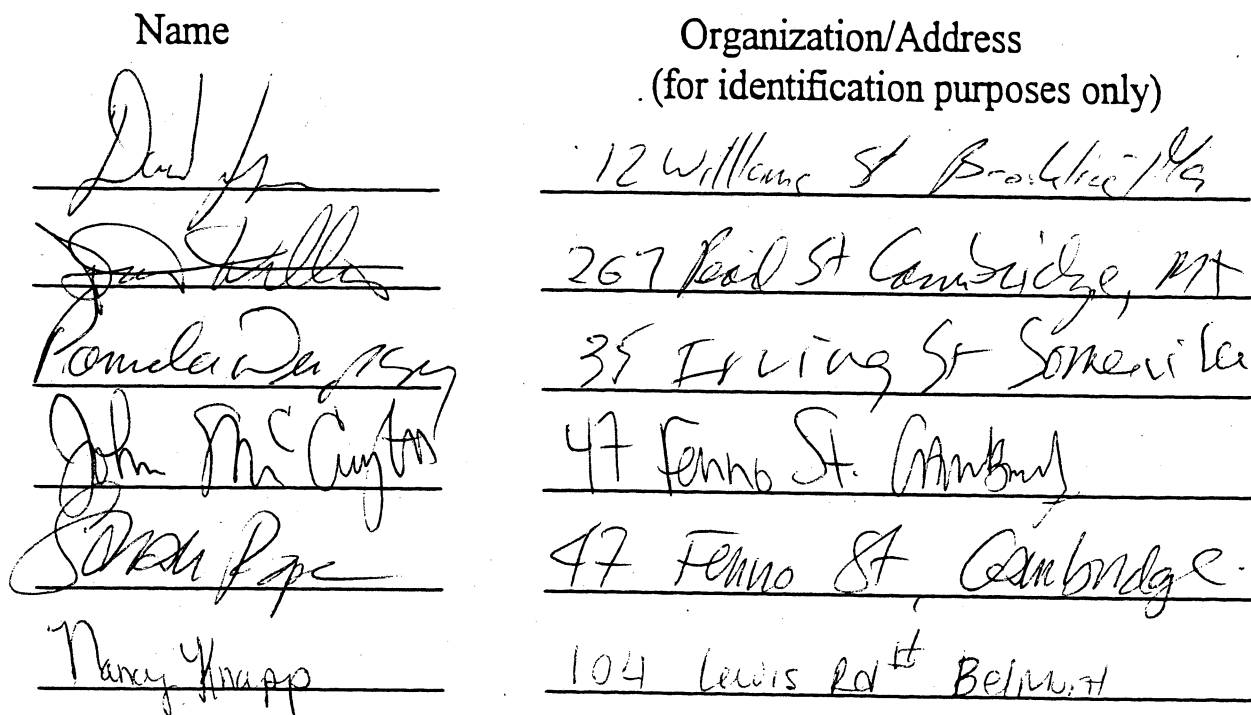 Name Organization/Address
(for identification purposes only)
David 12 Williams St Brookline Ma
267 St Cambridge, MA
Pamela 35 Irving St Somerville
John 47 Fenno St.
Sarah 47 Fenno St, Cambridge.
Nancy Knapp 104 Lewis Rd Belmont